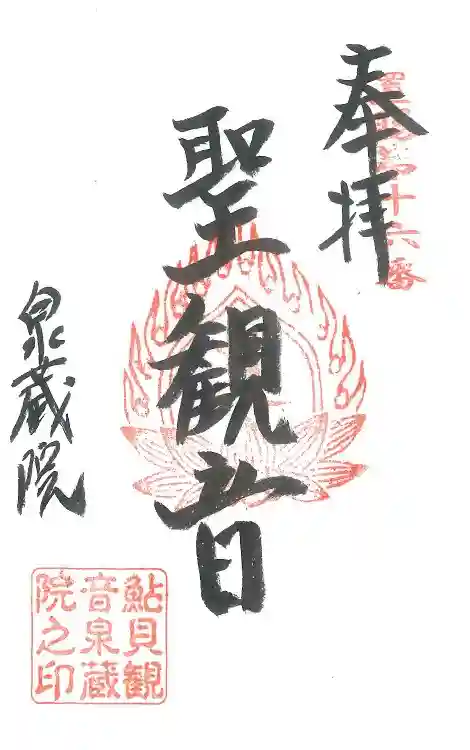 奉拝
置賜第十六番
聖観音
泉蔵院
鮎貝観
音泉蔵
院之印